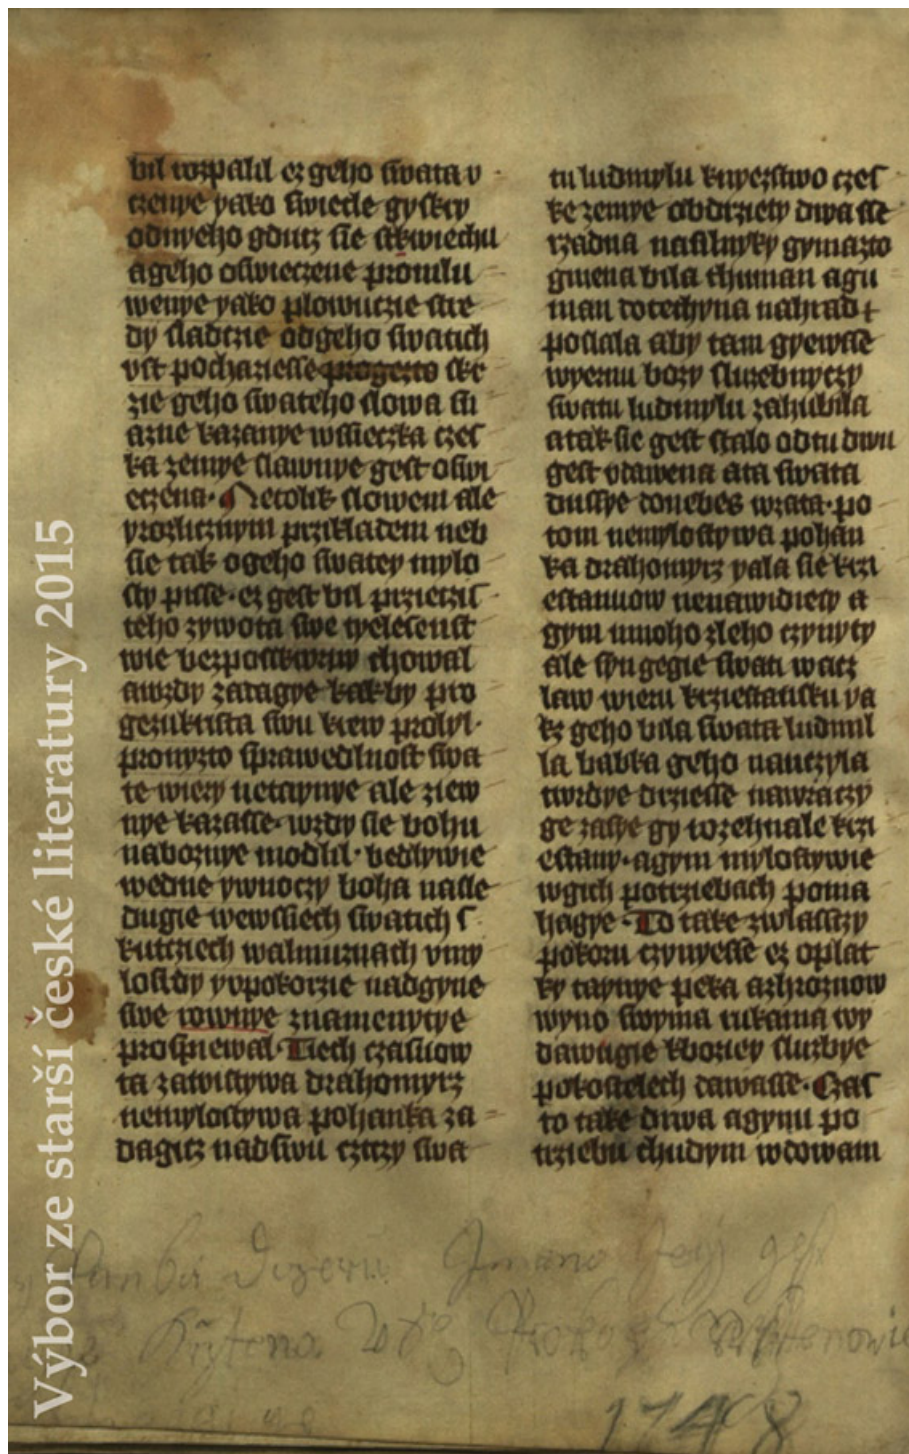 bil wzpalil ez geho swata v
czenye yako swiecle gyskry
odnyeho gducz sie stkwiechu
ageho oswieczene promlu
wenye yako plowuczie stre
dy sladczie odgeho swatich
vst pochaziesse progezto skr
zie geho swateho slowa sli
azne kazanye wssieczka czes
ka zemye slawnye gest oswi
eczena. Netolik slowem ale
yrozlicznym przikladem neb
sie tak ogeho swatey mylo
sty pisse. ez gest bil przieczis
teho zywota swe tyelesenst
wie bezposkwrny chowal
awzdy zatagye kakby pro
gezukrista swu krew prolyl.
pronyzto sprawedlnost swa
te wiery netaynye ale ziew
nye kazasse. wzdy sie bohu
naboznye modlil. bedlywie
wedne ywnoczy boha nasle
dugie wewssiech swatich s
kutciech walmuznach vmy
losrdy yvpokorzie nadgyne
swe rownye znamenytye
prospiewal. Tiech czasuow
ta zawistywa drahomyrz
nemylostywa pohanka za
dagicz nadswu cztczy swa
tu ludmylu knyezstwo czes
ke zemye obdrziety dwa sse
rzadna nasilnyky gymazto
gmena bila thuman agu
man totechyna nahrad
poslala aby tam gyewsse
wyernu bozy sluzebnyczy
swatu ludmylu zahubila
atak sie gest stalo odtu dwu
gest vdawena ata swata
dussye donebes wzata. po
tom nemylostywa pohan
ka drahomyrz yala sie krzi
estanuow nenawidiety a
gym mnoho zleho czynyty
ale syn gegie swati wacz
law wieru krziestansku ya
kz geho bila swata ludmil
la babka geho nauczyla
twrdye drziesse nawraczy
ge zasye gy wzehnale krzi
estany. agym mylostywie
wgich potrziebach poma
hagye. To take zwlasstzy
pokoru czynyesse ez oplat
ky taynye peka azhroznow
wyno swyma rukama wy
dawugie kboziey sluzbye
pokostelech dawasse. Czas
to take drwa agynu po
trziebu chudym wdowam
1748
Výbor ze starší české literatury 2015